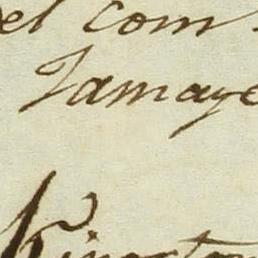 el com
Jamaye
Kingston